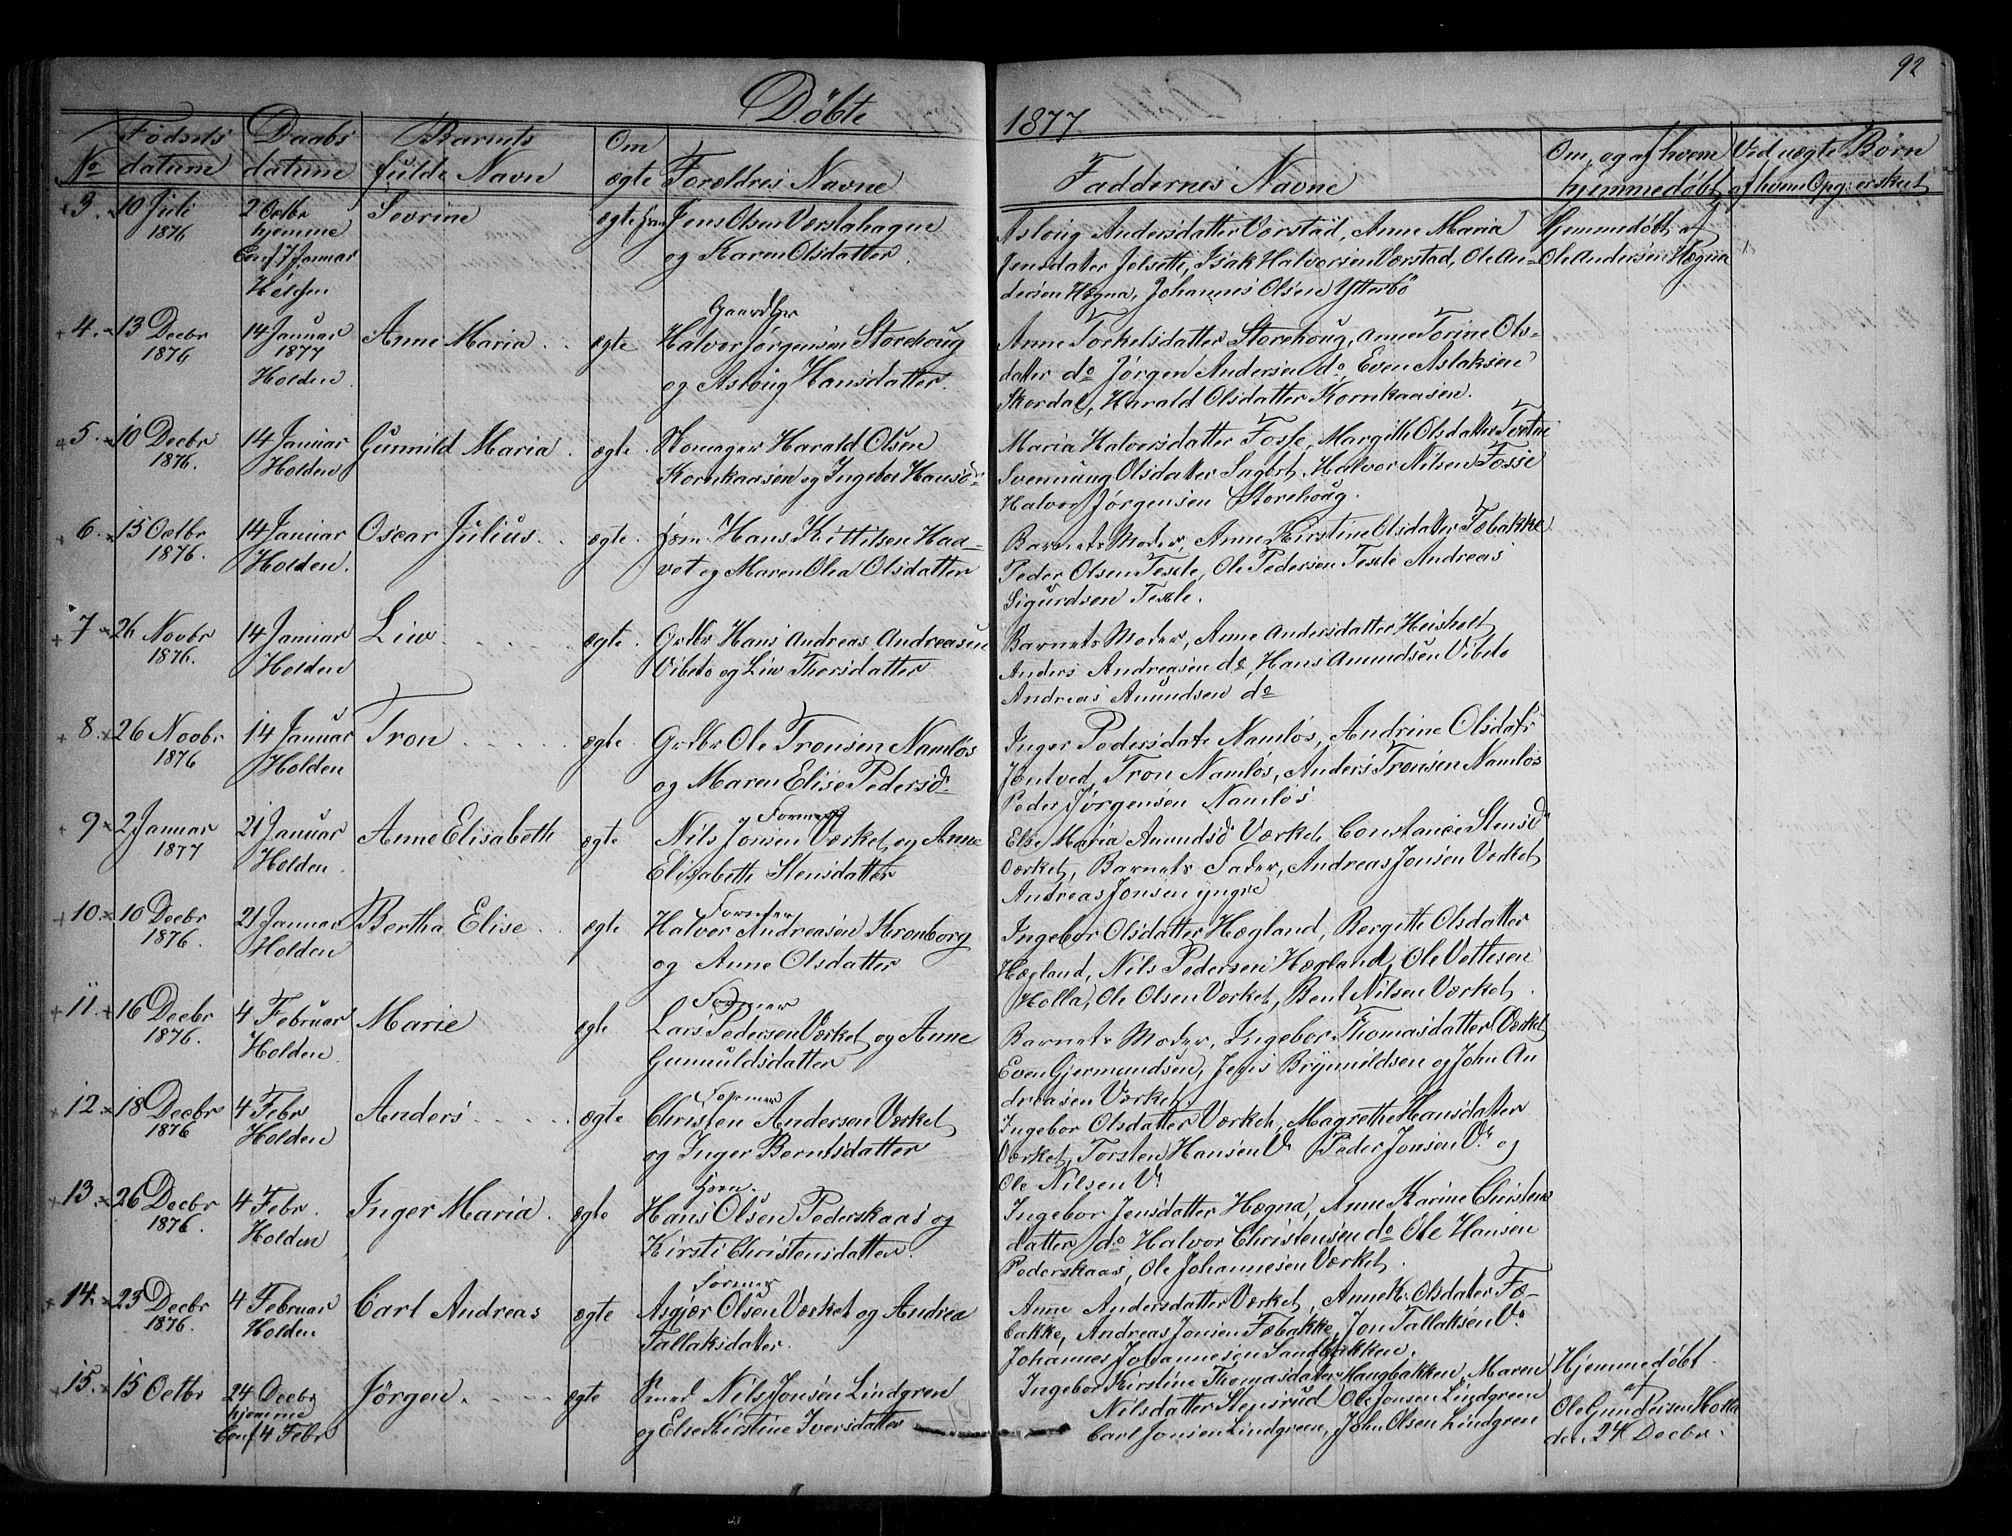 92
Döbte
1877
No
Födsels datum
Daabs datum
Barnets fulde Navn
Om ægte
Forældres Navne
Faddernes Navne
Om, og af hvem hjemmedøbt
Ved uægte Børn af hvem Opg: er skeet
3. 10 Juli 1876
2 Octbr hjemme Conf 7 Januar Holden
Sevrine
ægte
Jens Olsen Værstahagne
og Karen Olsdatter.
Asloug AndersdatterVærstad, Anne Maria
Jensdatter Jelsette, Isak Halvorsen Værstad, Ole An-
dersen Hægna, Johannes Olsen Ytterbö
Hjemmedöbt af
Ole Andersen Hægna
4. 13 Decbr 1876
14 Januar 1877 Holden
Anne Maria
ægte
Gaardbr
Halvor Jørgensen Storehoug
og Asloug Hansdatter.
Anne Torkelsdatter Storehoug, Anne Torine Ols-
datter do Jörgen Andersen do, Even Aslaksen
Skordal, Harald Olsdatter Kornkaasen.
5. 10 Decbr 1876.
14 Januar Holden
Gunnild Maria
ægte
Harald Olsen
Kornkaasen og Ingebor Hansd
Maria Halversdatter Fosse, Margitte Olsdatter Tveten
Svennung Olsdatter Halvor Nilsen Fosse
Halvor Jörgensen Storehoug.
6. 15 Octbr 1876.
14 Januar Holden.
Oscar Julius
ægte
Hans Kittilsen Haa-
vet og Maren Olea Olsdatter
Barnets Moder, Anne Kirstine Olsdatter Fæbakke
Peder Olsen Texle, Ole Pedersen Texle Andreas
Sigurdsen Texle.
7 26 Novbr 1876.
14 Januar Holden
Liw
ægte
Grdbr Hans Andreas Andreasen
Vibeto og Liw Thorsdatter
Barnets Moder, Anne Andersdatter Heisholt
Anders Andreasen do, Hans Amundsen Vibeto
Andreas Amundsen do
8. 26 Novbr 1876
14 Januar Holden
Tron
ægte
Grdbr Ole Tronsen Namlös
og Maren Elise Pedersd
Inger Pedersdatr Namlös, Andrine Olsdatr
Jontved, Tron Namlös, Anders Tronsen Namlös
Peder Jörgensen Namlös
9 2 Januar 1877
21 Januar Holden.
Anne Elisabeth
ægte
Former
Nils Jonsen Værket og Anne
Elisabeth Stensdatter
Else Maria Amundsd Værket, Constance Stensd
Værket, Barnets Fader, Andreas Jonsen Værket
Andreas Jonsen yngre
10. 10 Decbr 1876.
21 Januar Holden
Bertha Elise
ægte
Halvor Andreasen Kronborg
og Anne Olsdatter
Ingebor Olsdatter Hægland, Bergitte Olsdatter
Hægland, Nils Pedersen Hægland, Ole Vettesen
Holla, Ole Olsen Værket, Bent Nilsen Værket.
11. 16 Decbr 1876.
4 Februar Holden
Marie
ægte
Former
Lars Pedersen Værket og Anne
Gunnuldsdatter
Barnets Moder, Ingebor Thomasdatter Værket
Even Gjermundsen, Jens Brynnildsen og John An
dreasen Værket.
12 18 Decbr 1876
4 Febr Holden
Anders
ægte
Former
Christen Andersen Værket
og Inger Berntsdatter
Ingebor Olsdatter Værket, Magrethe Hansdatter
Værket, Torsten Hansen V Peder Jonsen V. og
Ole Nilsen V.
13. 26 Decbr 1876.
4 Febr. Holden
Inger Maria
ægte
Hans Olsen Pederskaas og
Kirsti Christensdatter.
Ingebor Jensdatter Hægna, Anne Karine Christens
datter do Halvor Christensen do Ole Hansen
Pederskaas, Ole Johannesen Værket.
14. 23 Decbr 1876.
4 Februar Holden
Carl Andreas
ægte
Former
Asgjær Olsen Værket og Andrea
Tallaksdatter.
Anne Andersdatter Værket, Anne K. Olsdatter Fæ-
bakke, Andreas Jonsen Fæbakke, Jon Tallaksen V.
Johannes Johannesen Sandbakken.
15. 15 Octbr
24 Decbr hjemme Conf 4 Febr
Jörgen
ægte
Smed Nils Jonsen Lindgren
og Else Kirstine Iversdatter
Ingebor Kirstine Thomasdatter Haugbakken, Maren
Nilsdatter Stensrud Ole Jonsen Lindgreen
Carl Jonsen Lindgreen, John Olsen Lindgreen
Hjemmedöbt
af
Ole Gundersen Holla
den 24 Decbr.